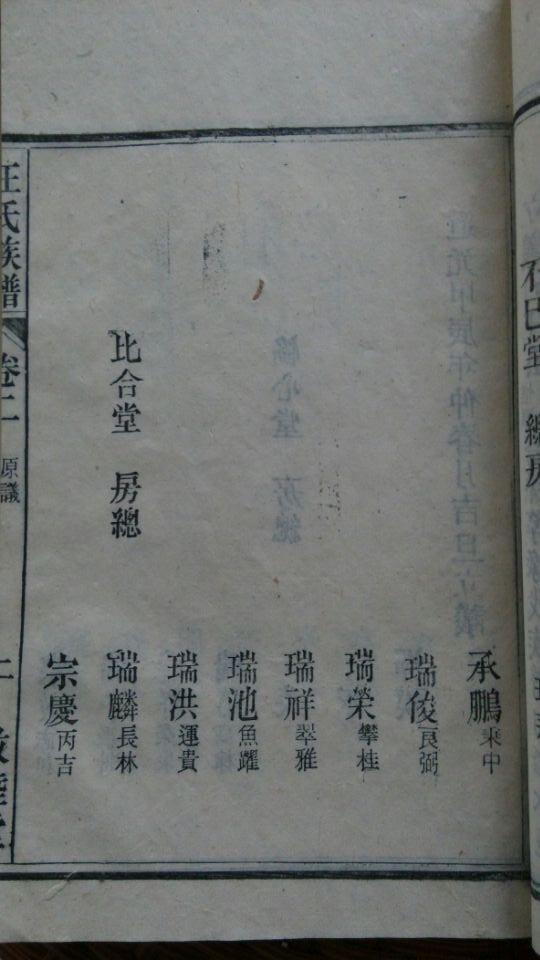 巳堂 總房
承鵬秉中
瑞俊良弼
瑞榮攀桂
瑞祥翠雅
瑞池魚躍
瑞洪運貴
比合堂 房總
瑞麟長林
宗慶丙吉
汪氏族譜 卷二 原議